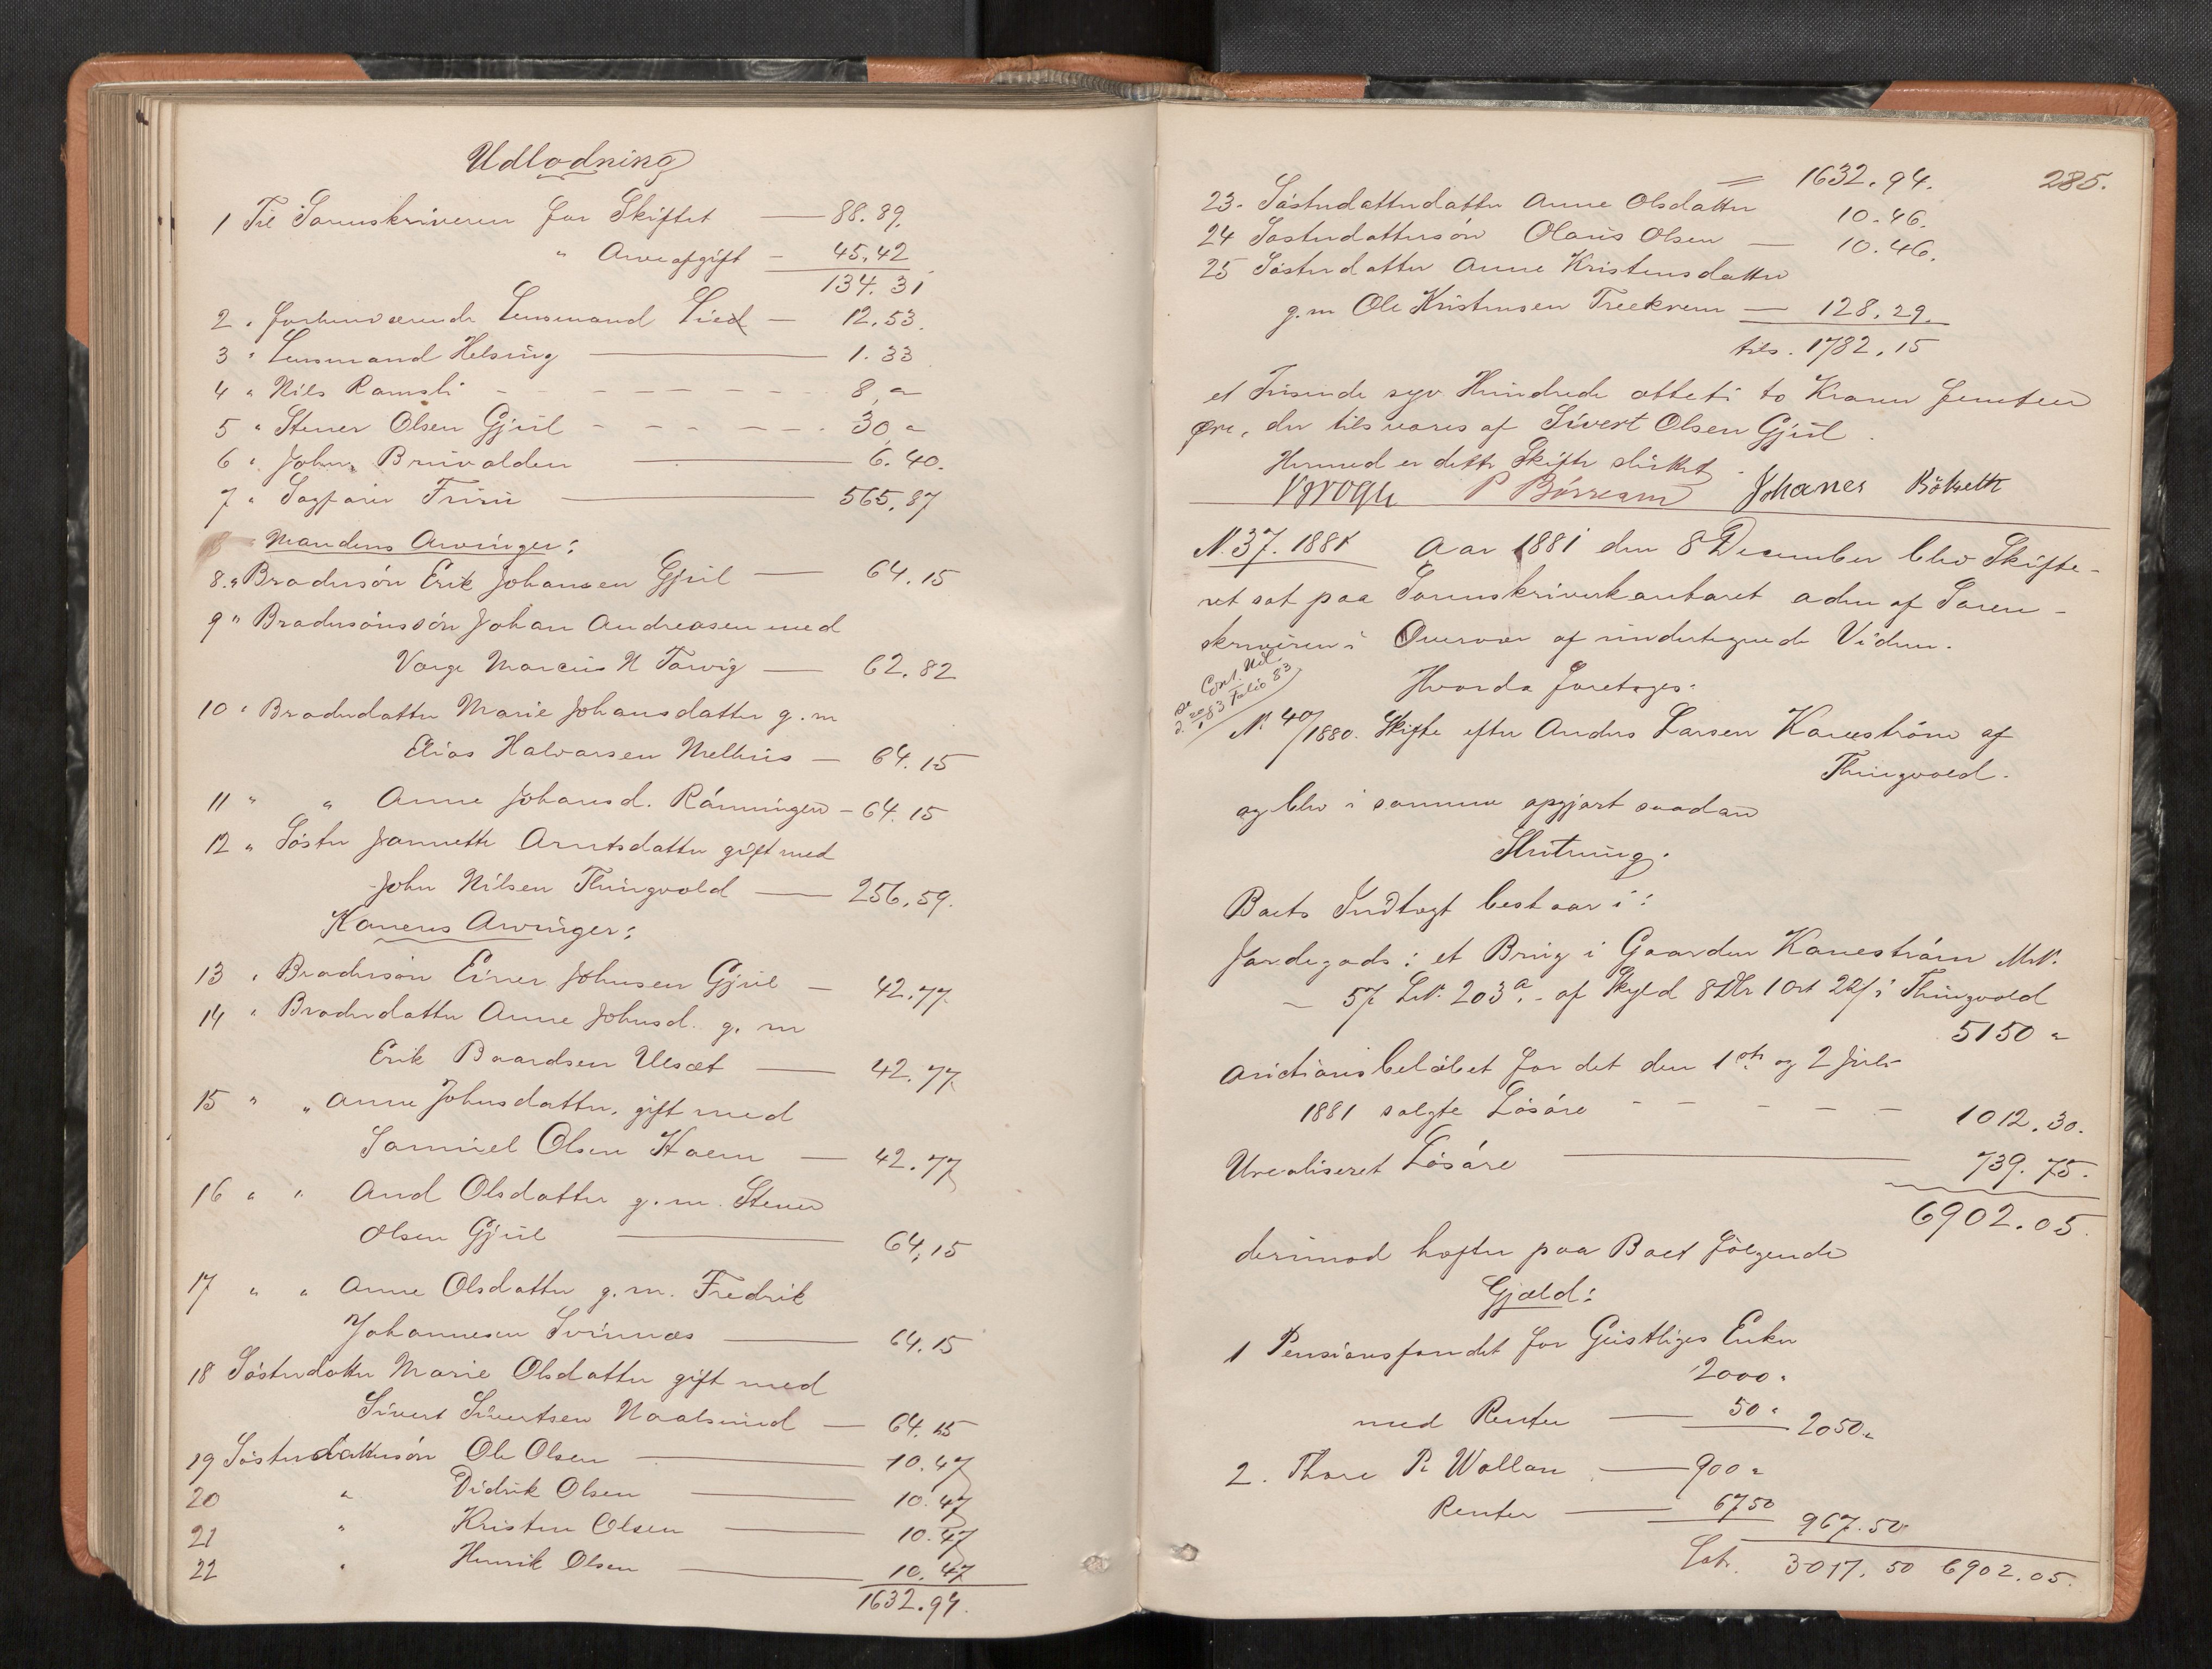 Udlodning
1 Til Sorenskriveren for Skiftet — 88.89.
" Arveafgift - 45,42
134.31
2 " forhenværende Lensmand Lied — 12.53.
3 " Lensmand Helsing — 1.33
4 " Nils Ramsli - - - - - - - 8 "
5 " Stener Olsen Gjul - - - - - - 30 "
6 " John Bruvolden — 6.40.
7 " Sagfører — 565,87
Mandens Arvinger:
8. " Brodersön Erik Johansen Gjul — 64.15
9 " Brodersönssön Johan Andreasen med
Værge Marcus N Torvig — 62.82
10 " Broderdatter Marie Johansdatter g. m
Elias Halvorsen Melhus — 64.15
11 " " Anne Johansd. Rönningen - 64.15
12 " Söster Jannette Arntsdatter gift med
John Nilsen Thingvold — 256.59.
Konens Arvinger:
13 " Brodersön Einer Johnsen Gjul — 42.77
14 " Broderdatter Anne Johnsd. g. m
Erik Baardsen Ulsæt — 42.77
15 " " Anne Johnsdatter, gift med
Samuel Olsen Hoem — 42.77
16 " " And Olsdatter g. m. Stener
Olsen Gjul — 64,15
17 " " Anne Olsdatter g. m. Fredrik
Johannesen Svinnæs — 64.15
18 Sösterdatter Marie Olsdatter gift med
Sivert Sivertsen Naalsund — 64.15
19 Sösterdattersön Ole Olsen — 10.47
20 " Didrik Olsen — 10.47
21 " Kristen Olsen — 10.47
22 " Henrik Olsen — 10.47
1632.94.
285.
= 1632.94.
23. Sösterdatterdatter Anne Olsdatter 10.46.
24 Sösterdattersön Olaus Olsen — 10.46.
25 Sösterdatter Anne Kristensdatter
g. m Ole Kristensen Treekrem — 128.29.
tils. 1782.15
et Tusende syv Hundrede otteti to Kroner femten
Øre, der tilsvares af Sivert Olsen Gjul.
Hermed er dette Skifte sluttet.
Krogh P Börresen Johanes Bölseth
N. 37. 1881 Aar 1881 den 8 December blev Skifte-
ret sat paa Sorenskriverkontoret adm af Soren-
skriveren i Overvær af undertegnede Vidner.
Hvorda foretoges:
N. 40/1880. Skifte efter Anders Larsen Kaneström af
Thingvold.
og blev i samme opgjort saadan
Slutning.
Boets Indtægt bestaar i:
Jordegods: et Brug i Gaarden Kaneström M.N.
57 L.N. 203 a. - af Skyld 8 Dlr 1 Ort 22 s i Thingvold
5150 "
Auctionsbelöbet for det den 1ste og 2 Juli
1881 solgte Lösöre - - - - - 1012.30.
Urealiseret Lösöre — 739.75.
6902.05.
derimod hefter paa Boet fölgende
Gjæld:
1 Pensionsfondet for Geistliges Enker
2000 "
med Renter — 50 " 2050 "
2. Thore P. Wollan — 900 "
Renter — 6750 967.50
Lat. 3017.50 6902.05.